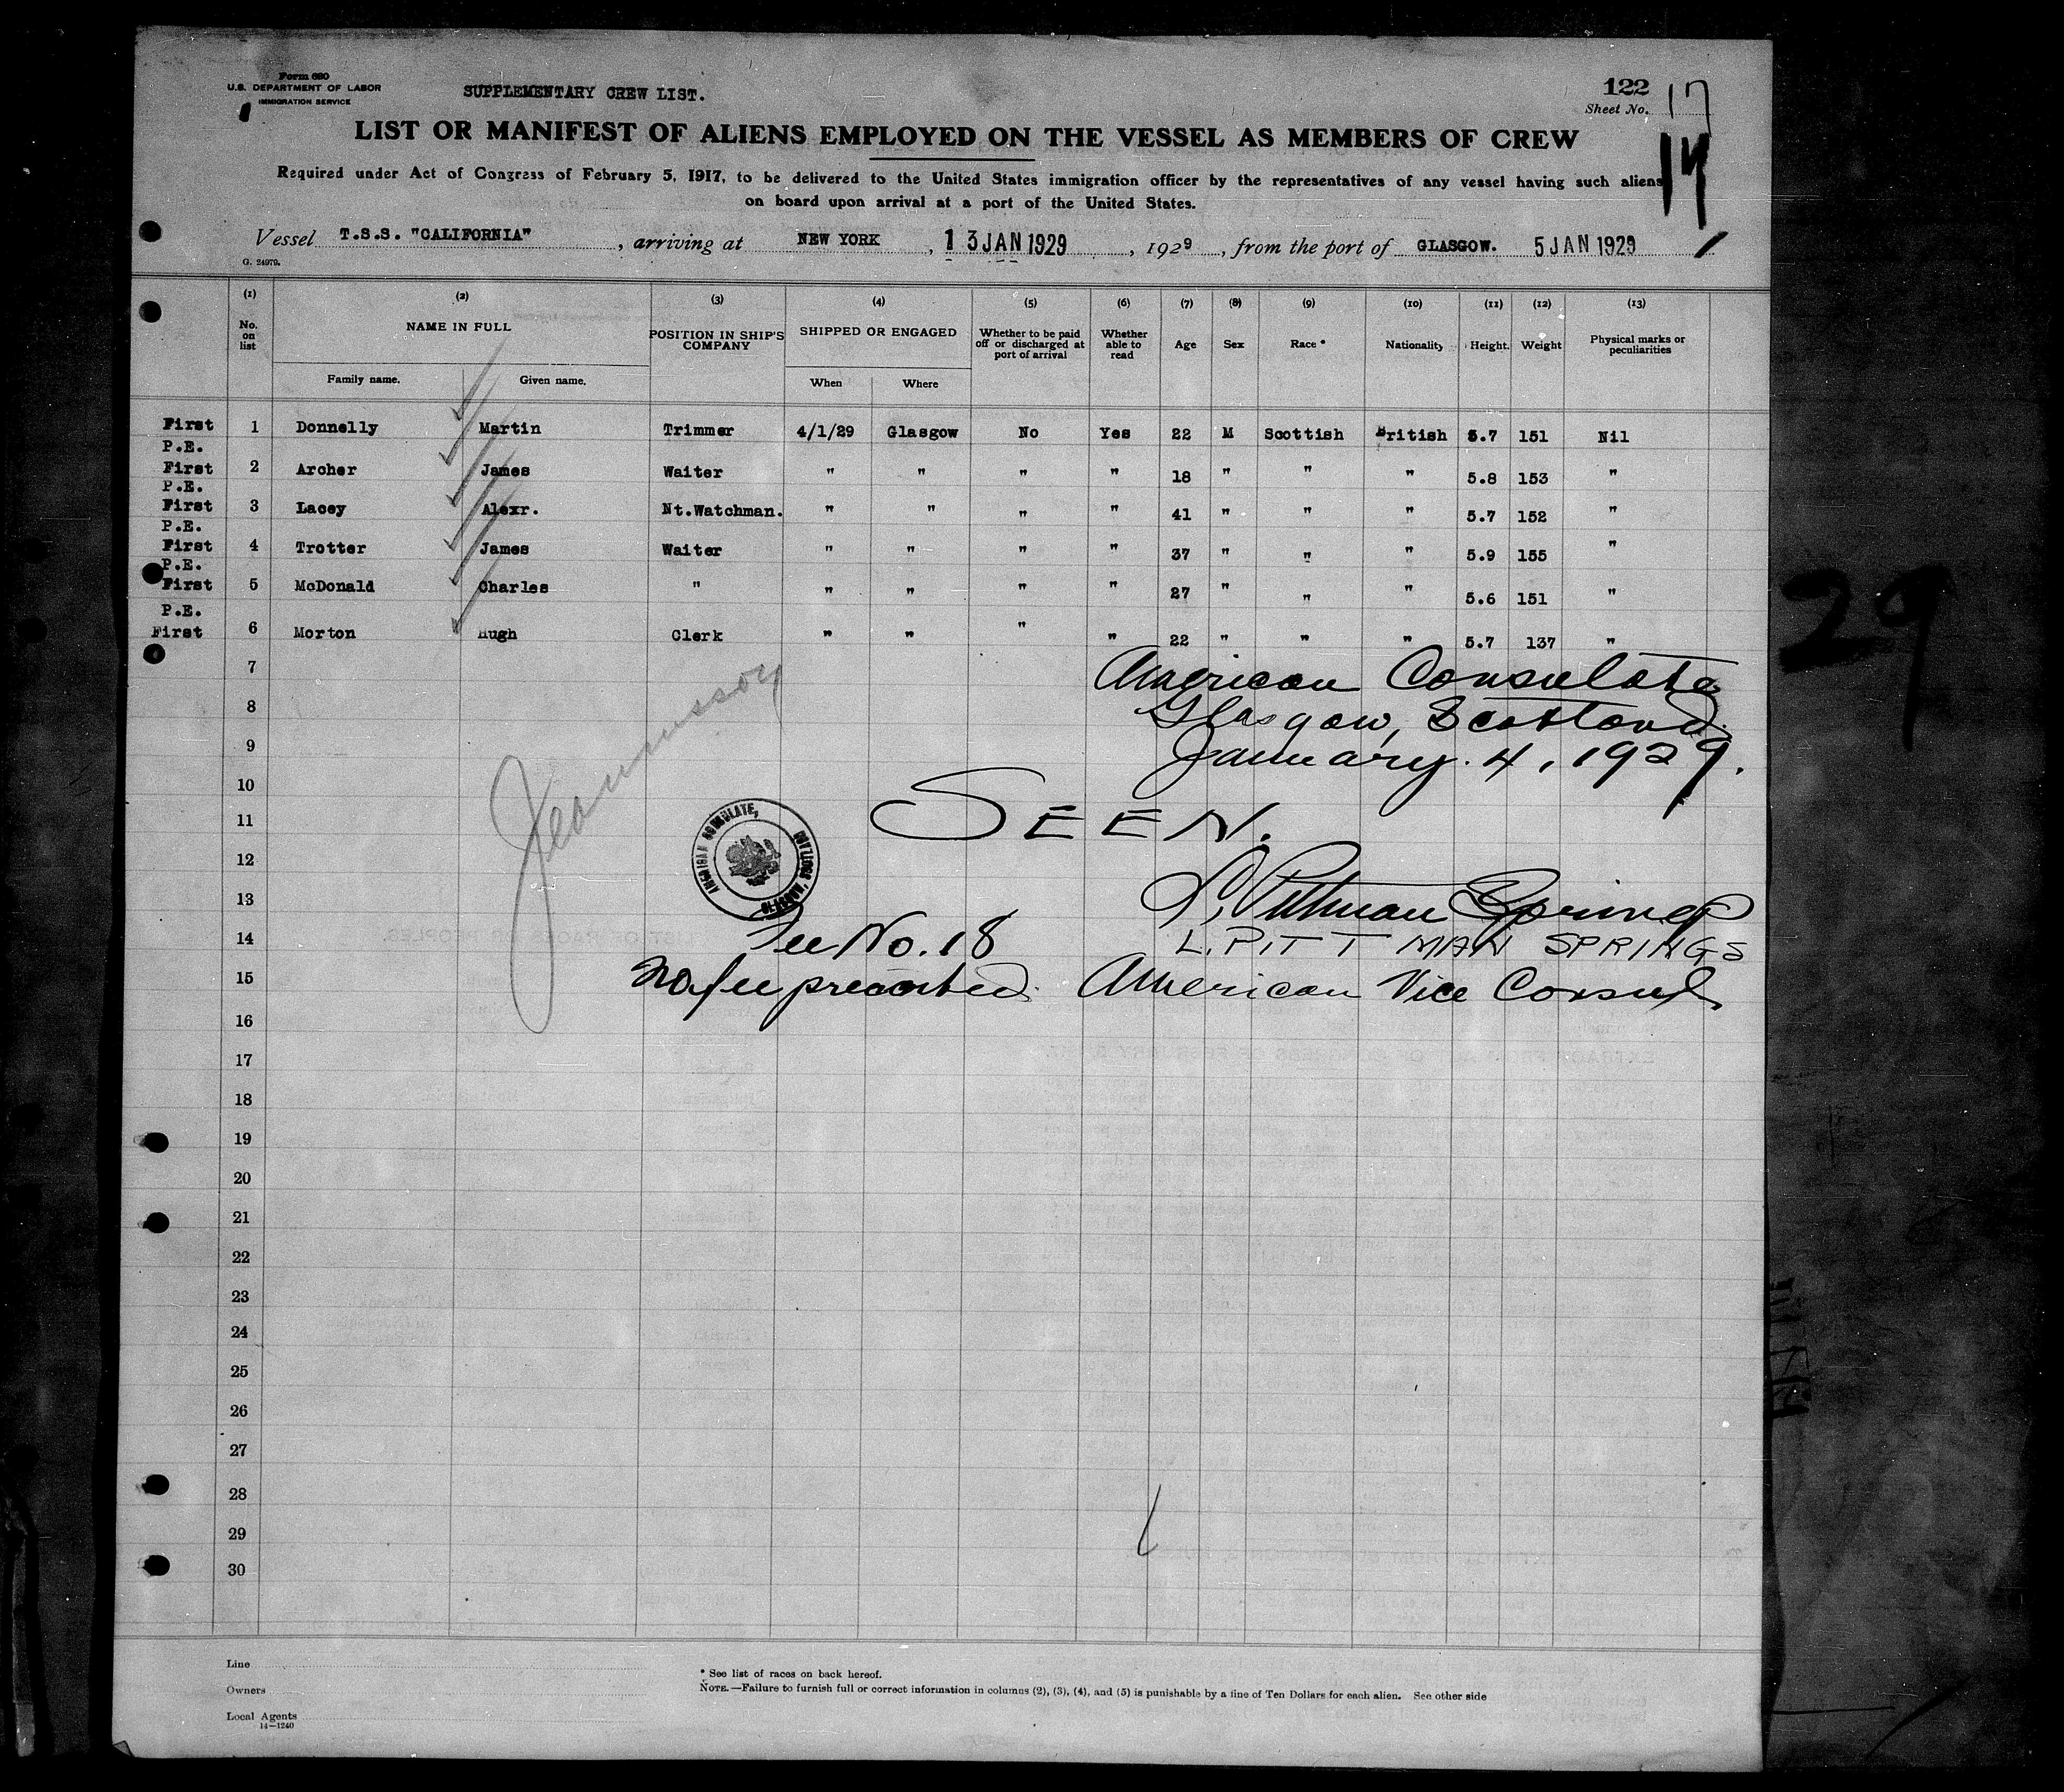 Form 680
U.S. DEPARTMENT OF LABOR
IMMIGRATION SERVICE
SUPPLEMENTARY CREW LIST.
122
Sheet No. 17
14
LIST OR MANIFEST OF ALIENS EMPLOYED ON THE VESSEL AS MEMBERS OF CREW
Required under Act of Congress of February 5, 1917, to be delivered to the United States immigration officer by the representatives of any vessel having such aliens
on board upon arrival at a port of the United States.
Vessel T.S.S. "CALIFORNIA", arriving at NEW YORK, 13 JAN 1929, 1929, from the port of GLASGOW. 5 JAN 1929
G. 24979.
(1) (2) (3) (4) (5) (6) (7) (8) (9) (10) (11) (12) (13)
No. on list NAME IN FULL POSITION IN SHIP'S COMPANY SHIPPED OR ENGAGED Whether to be paid off or discharged at port of arrival Whether able to read Age Sex Race * Nationality Height. Weight Physical marks or peculiarities
Family name. Given name. When Where
First 1 Donnelly Martin Trimmer 4/1/29 Glasgow No Yes 22 M Scottish British 5.7 151 Nil
P.E.
First 2 Archer James Waiter " " " " 18 " " " 5.8 153 "
P.E.
First 3 Lacey Alexr. Nt.Watchman. " " " " 41 " " " 5.7 152 "
P.E.
First 4 Trotter James Waiter " " " " 37 " " " 5.9 155 "
P.E.
First 5 McDonald Charles " " " " " 27 " " " 5.6 151 "
P.E.
First 6 Morton Hugh Clerk " " " " 22 " " " 5.7 137 "
29
7
American Consulate
8
Glasgow, Scotland
9
January. 4, 1929.
10
11
SEEN.
AMERICAN CONSULATE, GLASGOW, SCOTLAND
12
13
L. Pittman Springs
14
Fee No. 18
L. PITTMAN SPRINGS
15
No fee prescribed. American Vice Consul
16
17
18
19
20
21
22
23
24
25
26
27
28
29
30
Line
Owners
Local Agents
14—1240
* See list of races on back hereof.
NOTE.—Failure to furnish full or correct information in columns (2), (3), (4), and (5) is punishable by a fine of Ten Dollars for each alien. See other side